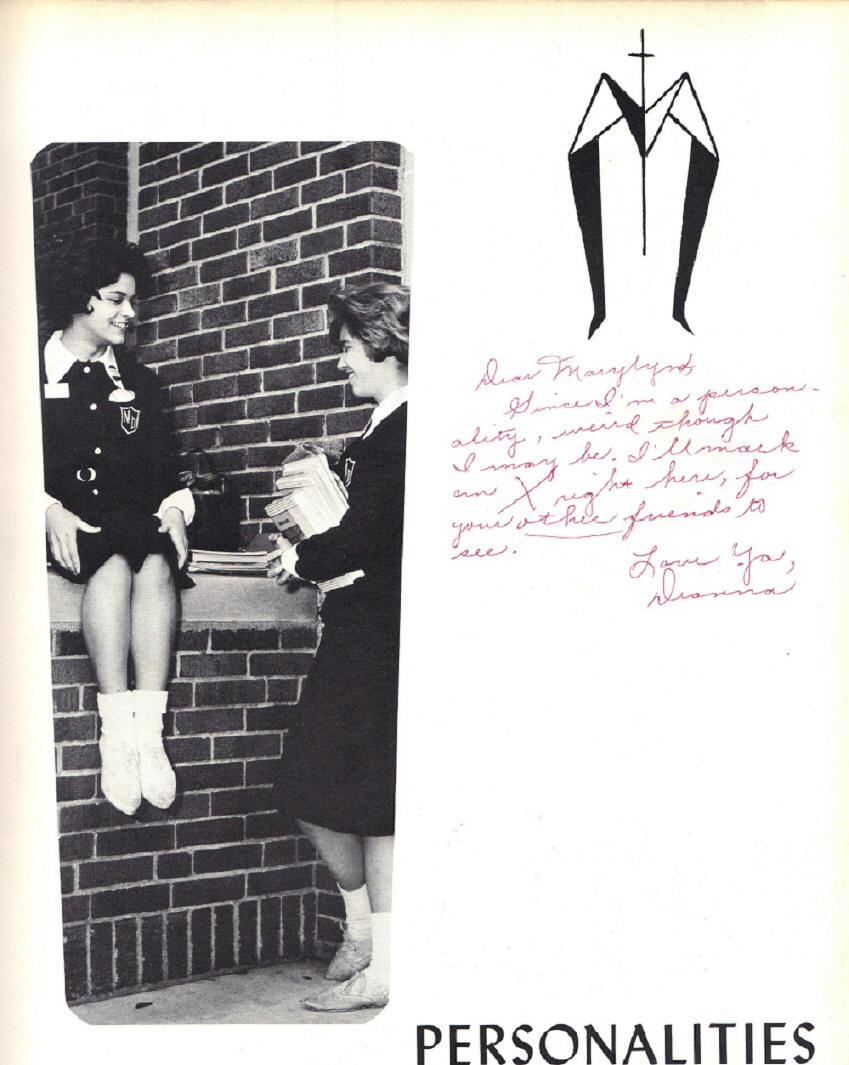 Dear Marylynd,
Since I'm a person-
ality, weird though
I may be. I'll mark
an X right here, for
your other friends to
see.
Love Ya,
Dianna
MD
PERSONALITIES